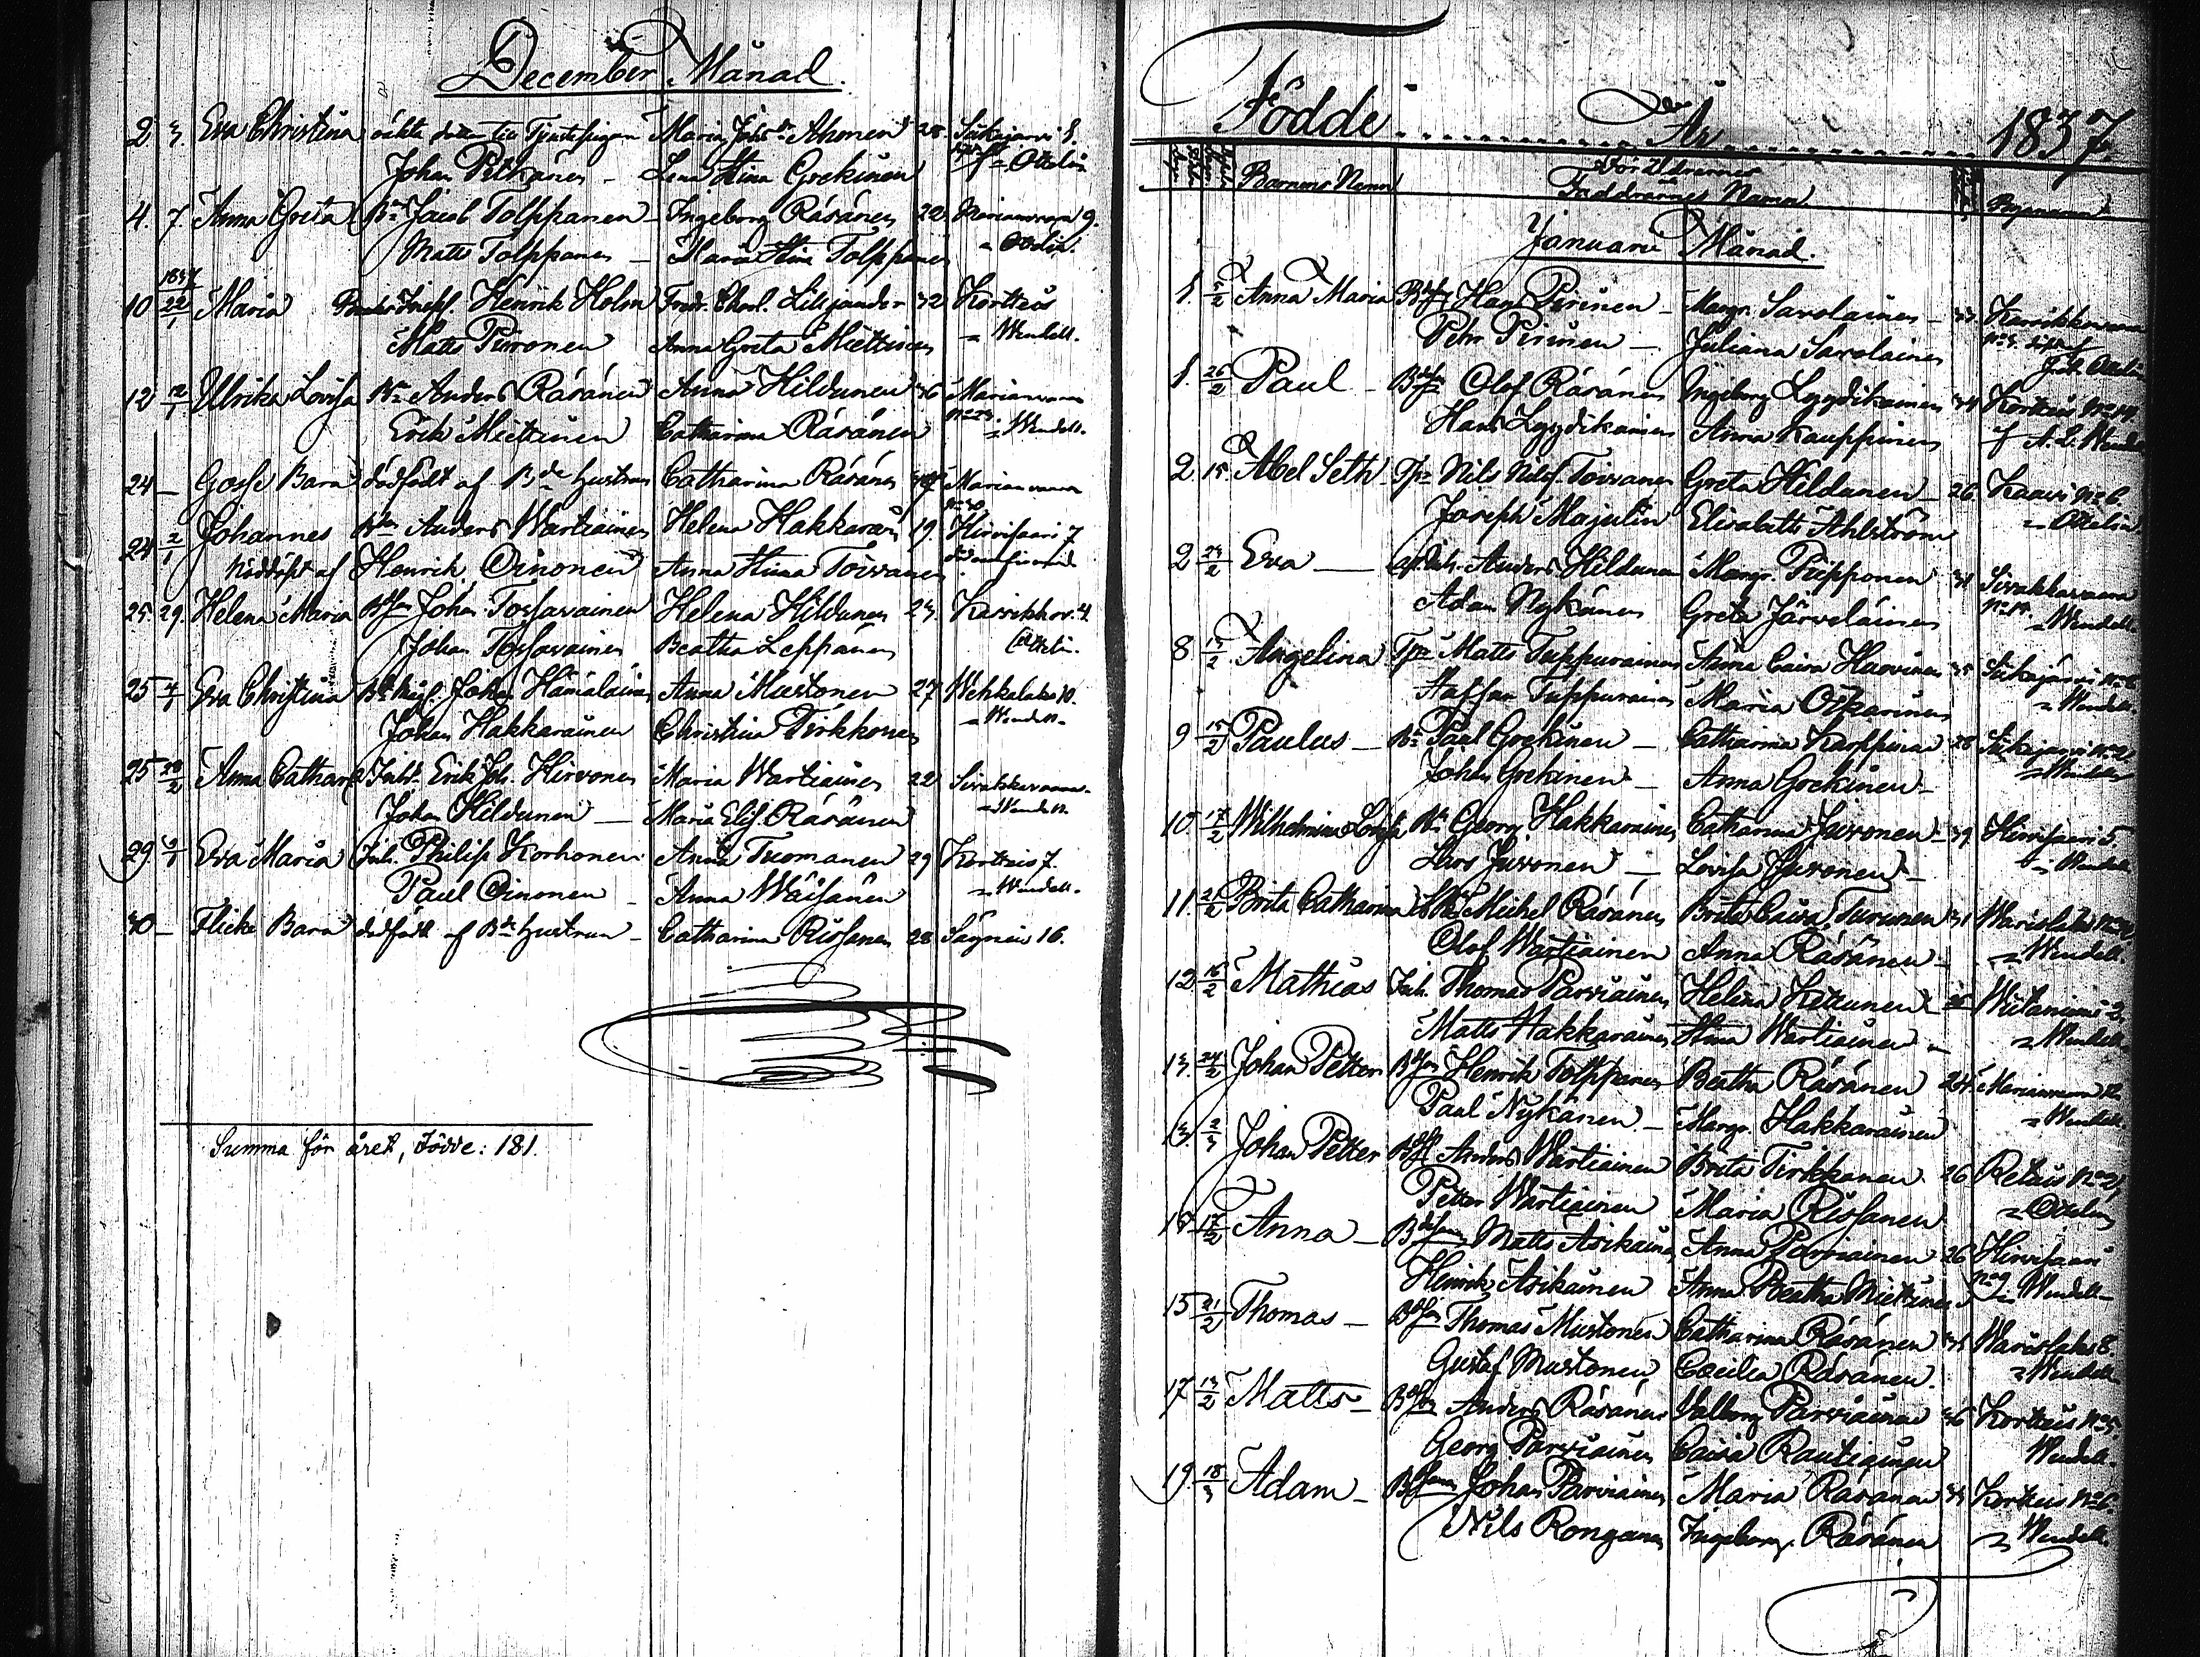 December Månad.
2 3. Eva Christina oäkta dotter till Tjenstepigan Maria Joh:dr Ahonen 28 Siikajärvi 8.
Johan Pitkänen - Lena Stina Grekinen Ottelin
4. 7. Anna Greta Bn Jacob Tolppanen - Ingeborg Räsänen 22 Marianvaara 9.
Matts Tolppanen - Maria Stina Tolppanen - Ottelin.
1837
10 22/1 Maria Henrik Holm Fredr. Charl. Liljander 32 Korttis
Matts Piironen Anna Greta Miettinen - Wendell.
12 12/1 Ulrika Lovisa Bn Anders Räsänen Anna Hildunen 36 Marianvaara
Erik Miettinen Catharina Räsänen - Wendell.
24 - Gosse Barn dödfödt af Bde hustrun Catharina Räsänen Marianvaara
24 2/1 Johannes Bn Anders Wartiainen Helena Hakkarain 19. Hirvisaari 7
Nöddöpt af Henrik Oinonen Anna Stina Toivanen
25. 29. Helena Maria Bdsn Johan Tossavainen Helena Hildunen 23. Karvikkov. 4.
Johan Tossavainen Beatha Leppänen Ottelin.
25 4/1 Eva Christina Johan Hämäläinen Anna Mustonen 27 Wehkalaks 10.
Johan Hakkarainen Christina Tirkkonen - Wendell.
25 28/2 Anna Cathar. Inh. Erik Joh. Hirvonen Maria Wartiainen 22 Sivakkavaara
Johan Hildunen - Maria Elis. Räsänen - Wendell.
29. 6/1 Eva Maria Inh. Philip Korhonen Anna Tuomanen 29 Korttis 7.
Paul Oinonen - Anna Wäisänen - Wendell.
30 - Flicke Barn dödfödt af Bde hustrun - Catharina Rissanen 28 Säyneis 16.
Summa för året, födde: 181.
Födde År 1837.
Barnens Namn Föräldrarnes Faddrarnes Namn Bynamn
Januari Månad.
1. 5/2 Anna Maria Bdsn Hans Pirinen - Margr. Savolainen - 33. Karvikkovaara
Petr Pirinen - Juliana Savolainen
1. 26/2 Paul - Bdsn Olof Räsänen Ingeborg Lyydikainen 34 Korttis No 14.
Hans Lyydikainen Anna Kauppinen A. L. Wendell
2. 15. Abel Seth - Tpr Nils Nilss. Toivanen Greta Hildunen - 26. Kaavi No 6
Joseph Majulin Elisabeth Ahlström - Ottelin
2 24/2 Eva - Anders Hildunen Margr. Piipponen 31 Sivakkavaara
Adam Nykänen Greta Järveläinen - Wendell.
8. 5/2 Angelina Tpr Matts Tuppurainen Anna Caisa Huovinen 35 Siikajärvi No 6
Staffan Tuppurainen Maria Oskarinen - Wendell.
9 15/2 Paulus - Bn Paul Grekinen - Catharina Karppinen 28 Siikajärvi No 2.
Johan Grekinen - Anna Grekinen - - Wendell
10 17/2 Wilhelmina Lovisa Bn Georg Hakkarainen Catharina Juvonen - 39 Hirvisaari 5.
Lars Juvonen - Lovisa Juvonen - - Wendell
11. 21/2 Brita Catharina Bn Michel Räsänen Brita Caisa Turunen 31 Warislaks No
Olof Wartiainen Anna Räsänen - - Wendell.
12. 16/2 Mathias Inh. Thomas Parviainen Helena Kettunen - 25 Witaniemi 2.
Matts Hakkarainen Anna Wartiainen - Wendell.
13. 24/2 Johan Petter Bdsn Henrik Tolppanen Beatha Räsänen 24. Marianvaara
Paul Nykänen - Margr. Hakkarainen - Wendell.
13 2/3 Johan Petter Anders Wartiainen Brita Tirkkonen. 26 Retuis No 2,
Petter Wartiainen Maria Rissanen - Ottelin
15 17/2 Anna - Bdsn Matts Asikainen Anna Parviainen 26 Hirvisaari
Henrik Asikainen Anna Beatha Miettinen No 9 - Wendell -
15 21/2 Thomas - Bdsn Thomas Mustonen Catharina Räsänen 35 Warislaks 8.
Gustaf Mustonen Cecilia Räsänen. - Wendell
17 13/2 Matts - Bdsn Anders Räsänen Valborg Parviainen 36 Korttis No 5.
Georg Parviainen Caisa Rautiainen Wendell.
19. 18/3 Adam - Johan Parviainen Maria Räsänen 33 Korttis No 6.
Nils Ronganen Ingeborg Räsänen - Wendell.